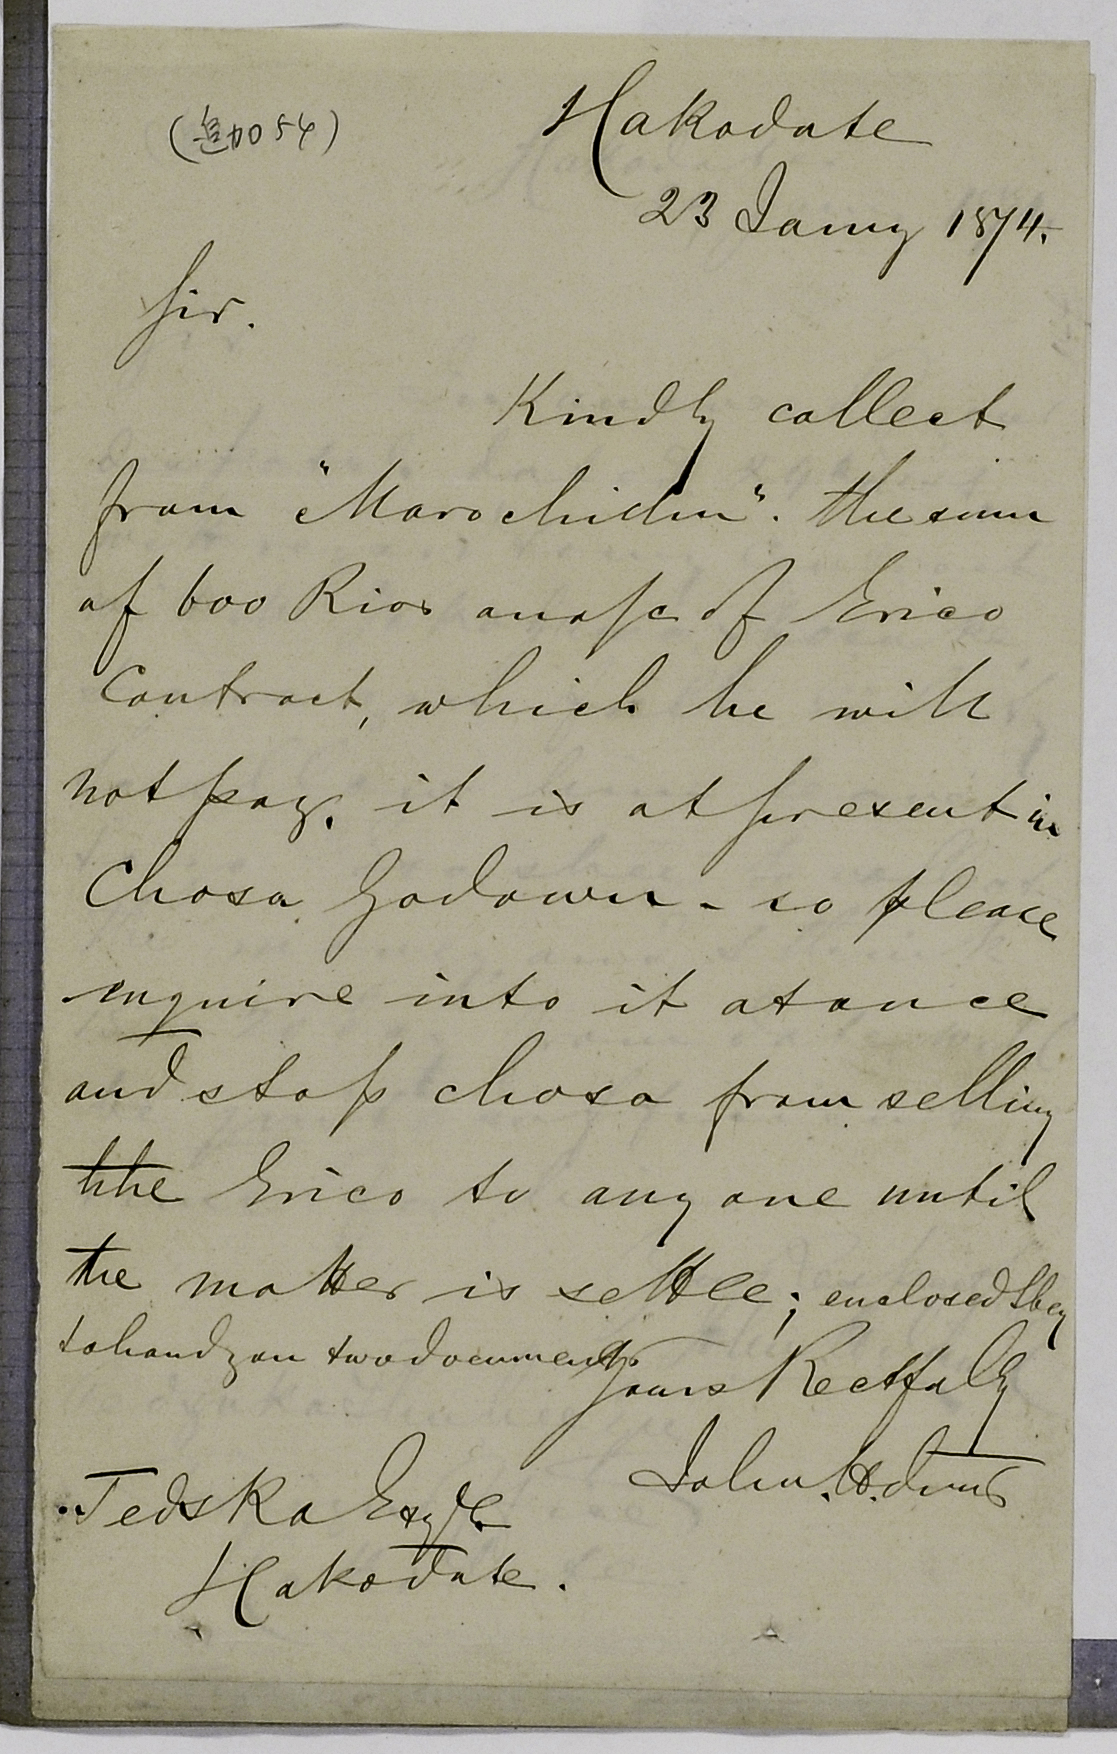 (追加054)
Hakodate
23 Jany 1874.
Sir.
Kindly collect
from "Marochichu". the sum
of 600 Rios on a/c of Erico
Contract, which he will
not pay. it is at present in
Chosa Godown - so please
enquire into it at once
and stop chosa from selling
the Erico to any one until
the matter is settle; enclosed I beg
to hand you two documents.
Yours Rectfully
John. H. 
Tedska Esqre
Hakodate.